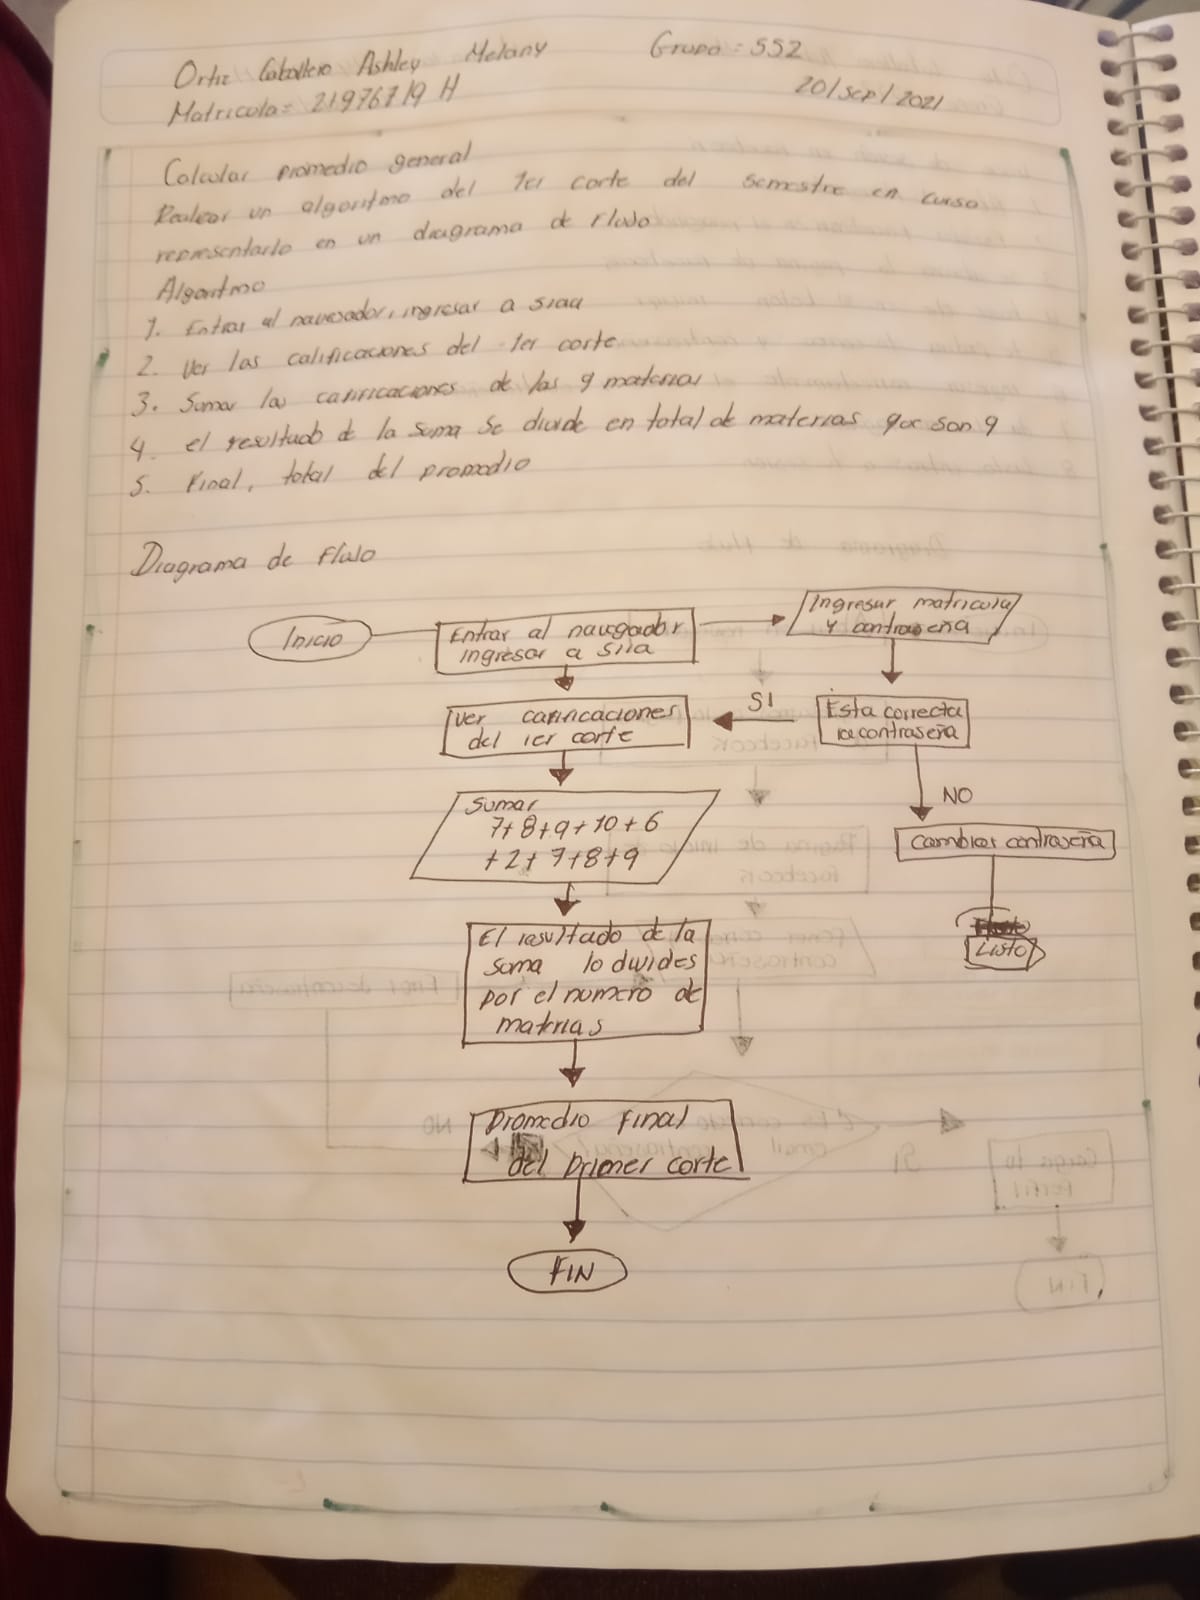 Ortiz Caballero Ashley Melany Grupo = 552
Matricola = 21976719 H 20/sep/2021
Calcular promedio general
Realizar un algoritmo del 1er corte del semestre en curso
representarlo en un diagrama de Flujo
Algoritmo
1. Entrar al navegador, ingresar a siaa
2. Ver las calificaciones del 1er corte
3. Sumar las calificaciones de las 9 materias
4. el resultado de la suma se divide en total de materias que son 9
5. Final, total del promedio
Diagrama de Flujo
Inicio
Entrar al navegador
ingresar a siia
Ingresar matricula
y contraseña
Ver calificaciones
del 1er corte
SI
Esta correcta
la contraseña
NO
Sumar
7+8+9+10+6
+2+7+8+9
Cambiar contraseña
Listo
El resultado de la
suma lo divides
por el numero de
materias
Promedio Final
del primer corte
FIN